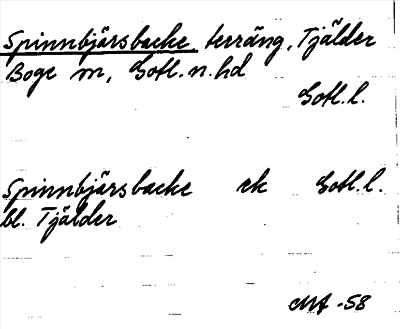 Spinnbjärsbacke terräng, Tjälder
Boge sn, Gotl. n. hd
Gotl. l.
Spinnbjärsbacke rk Gotl. l.
bl. Tjälder
-58